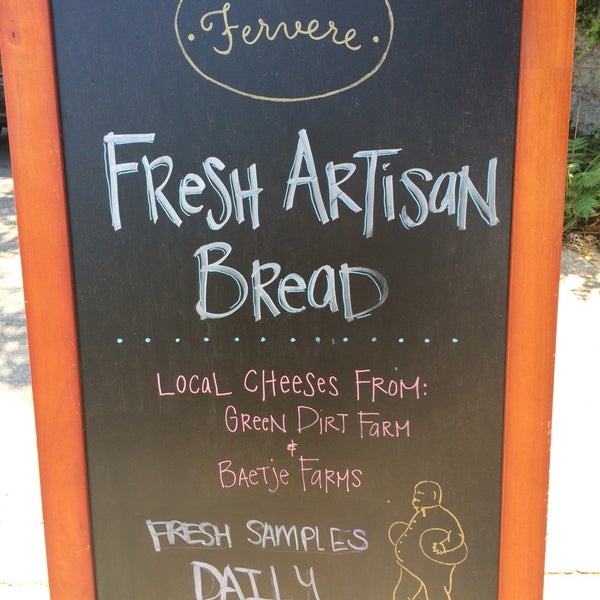 Fervere
FRESH ARTISAN
BREAD
LOCAL CHEESES FROM:
GREEN DIRT FARM
&
BAETJE FARMS
FRESH SAMPLES
DAILY